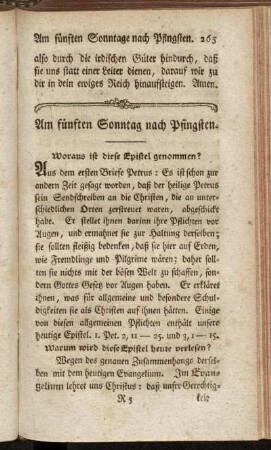 Am fünften Sonntage nach Pfingsten. 265
also durch die irdischen Güter hindurch, daß
sie uns statt einer Leiter dienen, darauf wir zu
dir in dein ewiges Reich hinaufsteigen. Amen.
Am fünften Sonntag nach Pfingsten.
Woraus ist diese Epistel genommen?
Aus dem ersten Briefe Petrus: Es ist schon zur
andern Zeit gesagt worden, daß der heilige Petrus
sein Sendschreiben an die Christen, die an unter-
schiedlichen Orten zerstreuet waren, abgeschickt
habe. Er stellet ihnen darinn ihre Pflichten vor
Augen, und ermahnet sie zur Haltung derselben;
sie sollten fleißig bedenken, daß sie hier auf Erden,
wie Fremdlinge und Pilgrime wären; daher soll-
ten sie nichts mit der bösen Welt zu schaffen, son-
dern Gottes Gesetz vor Augen haben. Er erkläret
ihnen, was für allgemeine und besondere Schul-
digkeiten sie als Christen auf ihnen hätten. Einige
von diesen allgemeinen Pflichten enthält unsere
heutige Epistel. 1. Pet. 2, 11 — 25. und 3, 1 — 15.
Warum wird diese Epistel heute verlesen?
Wegen des genauen Zusammenhangs dersel-
ben mit dem heutigen Evangelium. Im Evan-
gelium lehret uns Christus: daß unsre Gerechtig-
R 5 keit